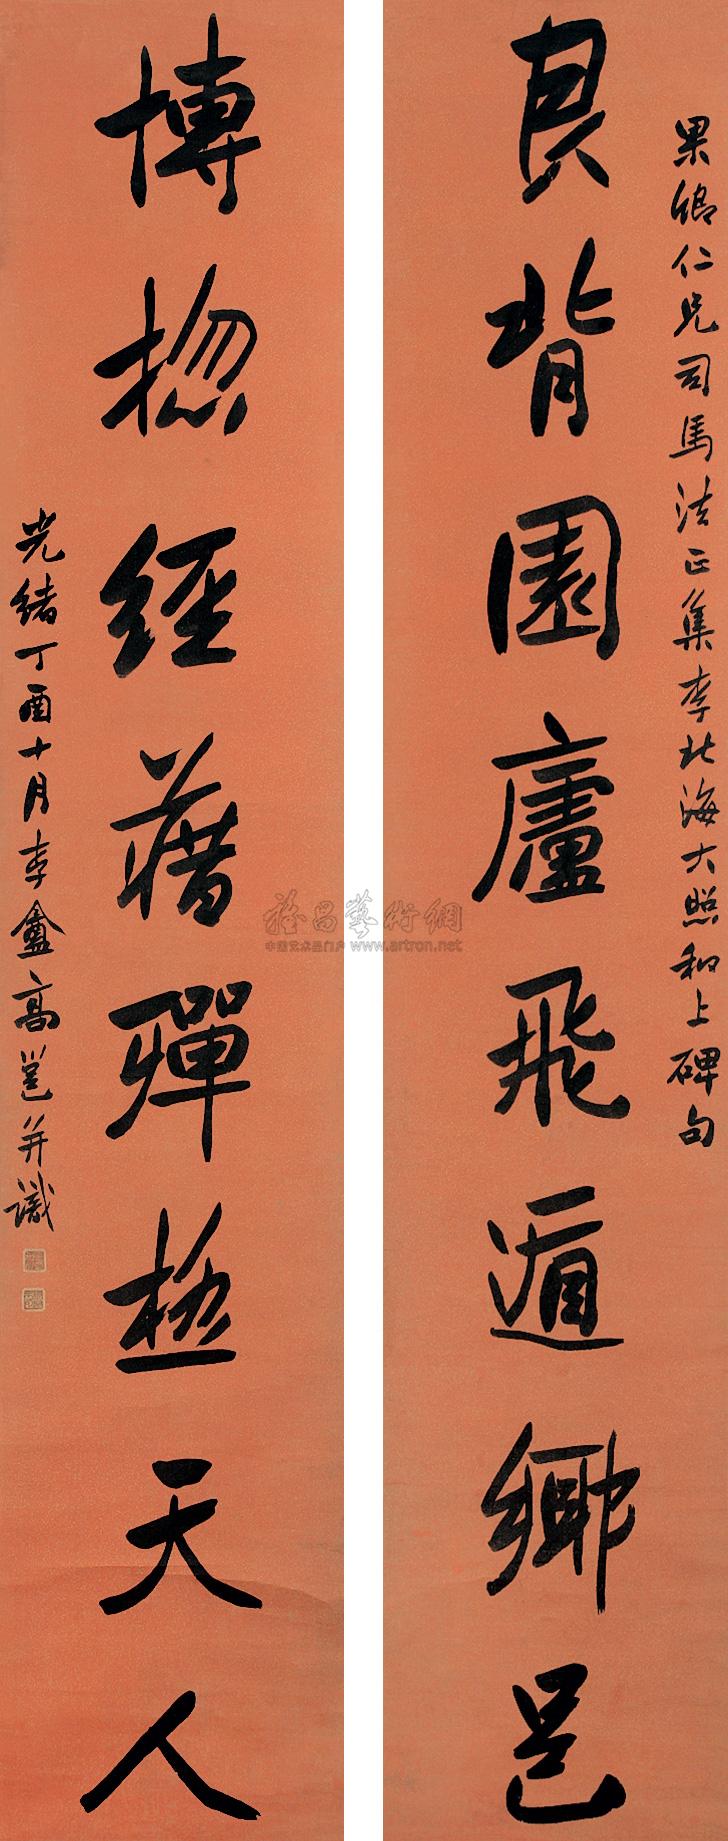 果卿仁兄司馬法正集李北海大照和上碑句
艮背園廬飛遁鄉邑
博揔經藉殫極天人
光緒丁酉十月李盦高邕并識
雅昌藝術網
中国艺术品门户 www.artron.net